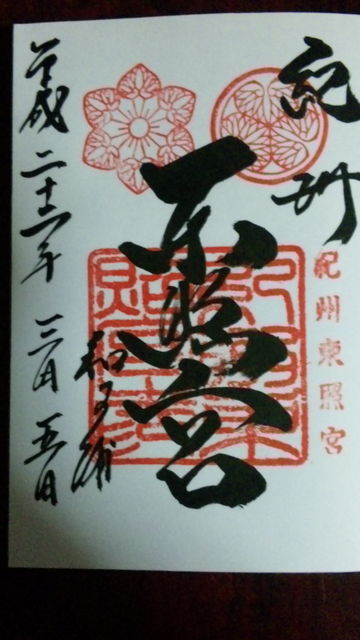 紀州
紀州東照宮
東照宮
和歌浦
平成二十二年 三月 五日